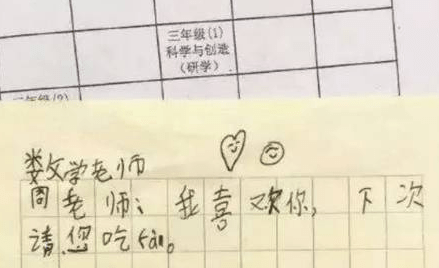 三年级(1)
科学与创造
(研学)
二年级(2)
数学老师
周老师：我喜欢你，下次
请您吃fàn。